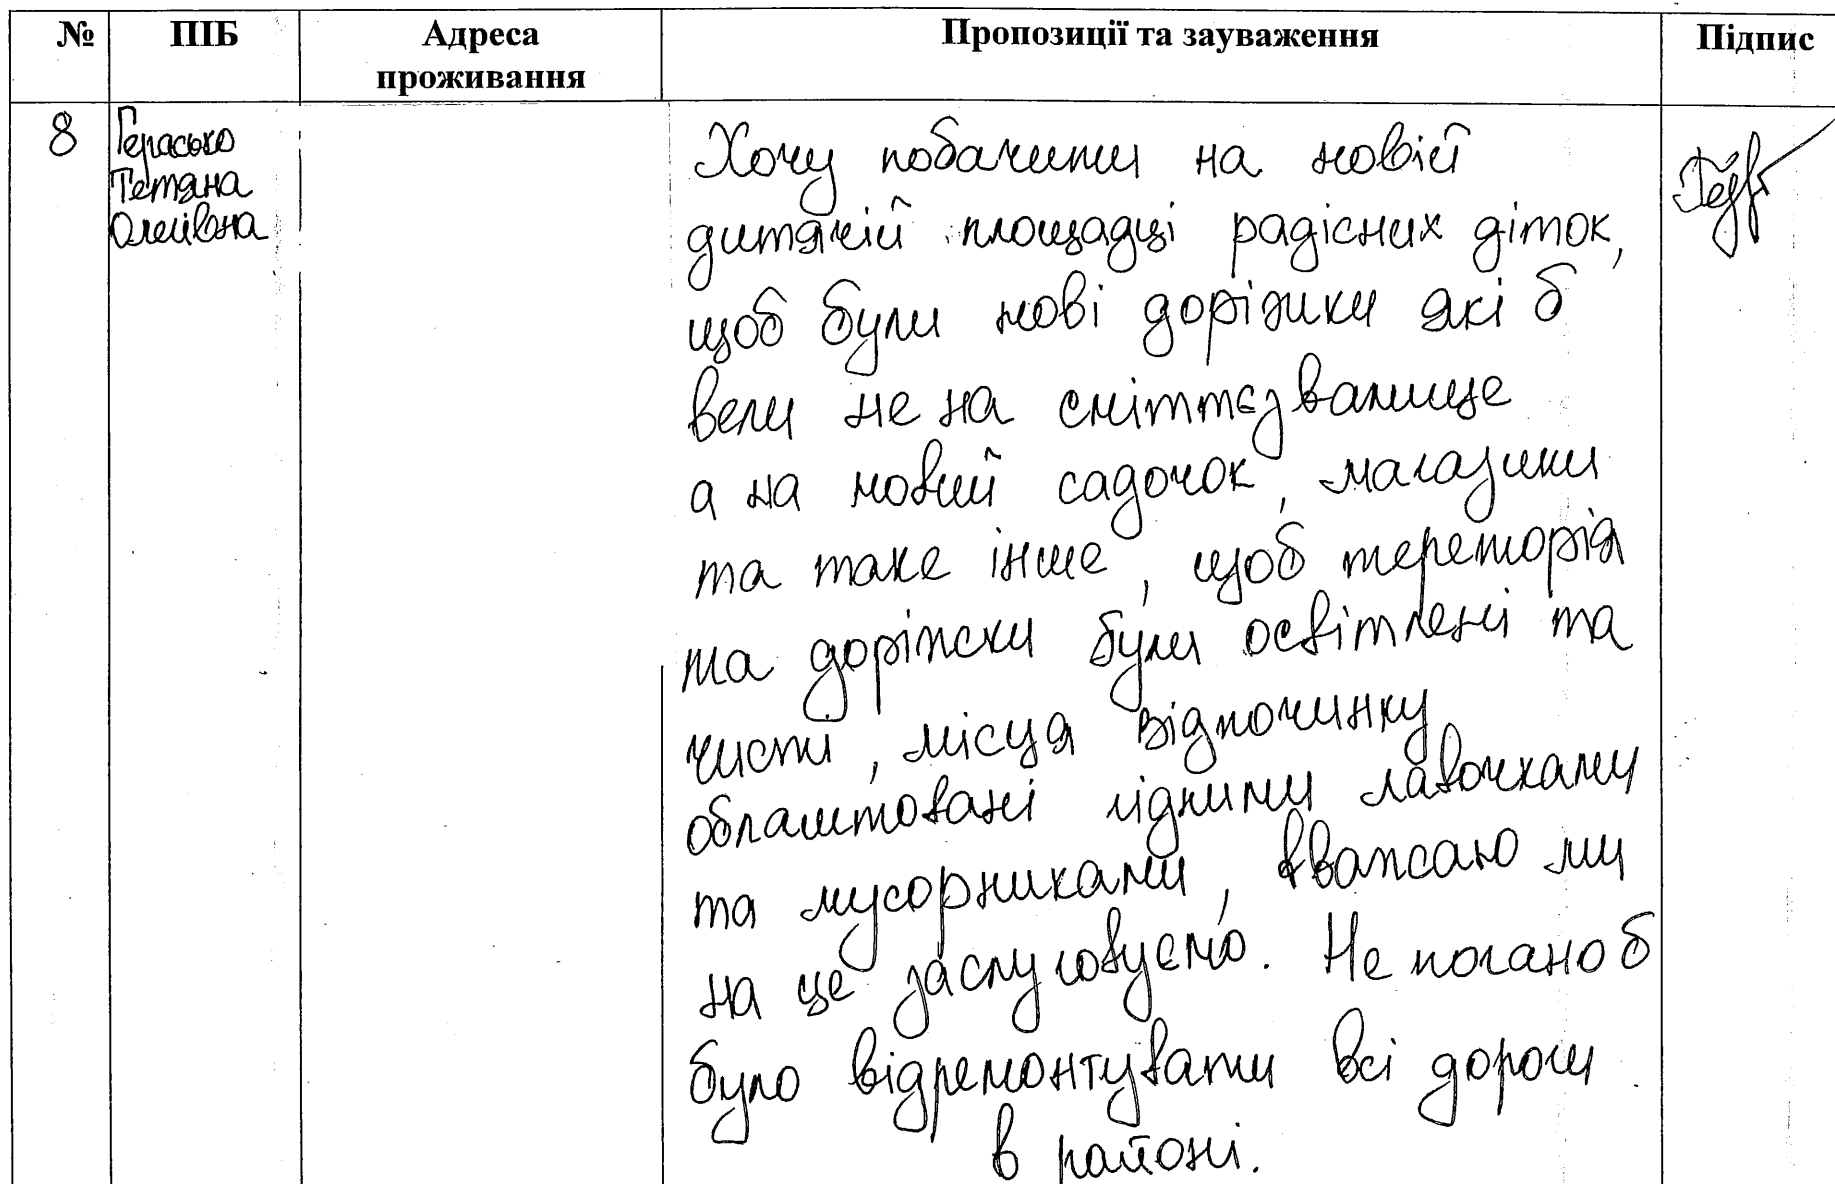 № ПІБ Адреса проживання Пропозиції та зауваження Підпис
8
Герасько
Тетяна
Олеївна
Хочу побачити на новій
дитячій площадці радісних діток,
щоб були нові доріжки які б
вели не на сміттєзвалище
а на новий садочок, магазини
та таке інше, щоб тереторія
та доріжки були освітлені та
чисті, місця відпочинку
облаштовані гідними лавочками
та мусорниками, вважаю ми
на це заслуговуємо. Не погано б
було відремонтувати всі дороги
в районі.